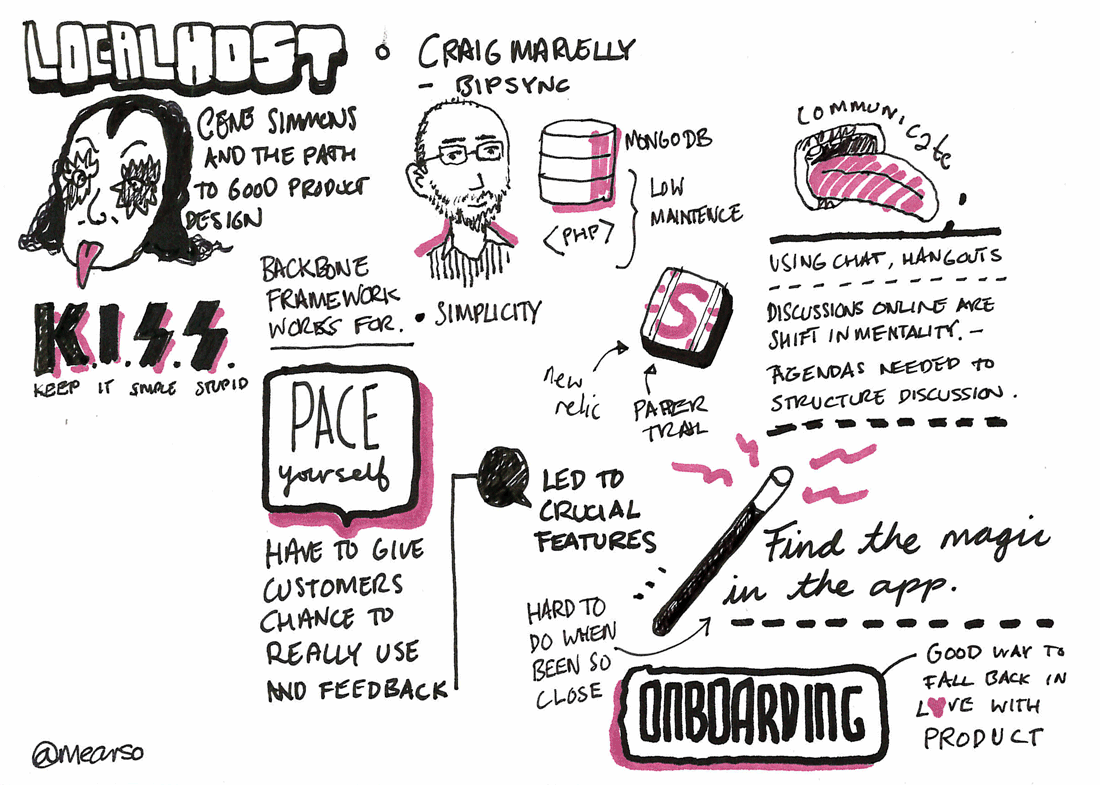 LOCALHOST
CRAIG MARVELLY
- BIPSYNC
GENE SIMMONS
AND THE PATH
TO GOOD PRODUCT
DESIGN
K.I.S.S.
KEEP IT SIMPLE STUPID
BACKBONE
FRAMEWORK
WORKS FOR.
• SIMPLICITY
MONGODB
<PHP>
LOW
MAINTENCE
S
new
relic
PAPER
TRAIL
COMMUNICATE
USING CHAT, HANGOUTS
DISCUSSIONS ONLINE ARE
SHIFT IN MENTALITY. -
AGENDAS NEEDED TO
STRUCTURE DISCUSSION.
PACE
yourself
HAVE TO GIVE
CUSTOMERS
CHANCE TO
REALLY USE
AND FEEDBACK
LED TO
CRUCIAL
FEATURES
Find the magic
in the app.
HARD TO
DO WHEN
BEEN SO
CLOSE
ONBOARDING
GOOD WAY TO
FALL BACK IN
LOVE WITH
PRODUCT
@mearso